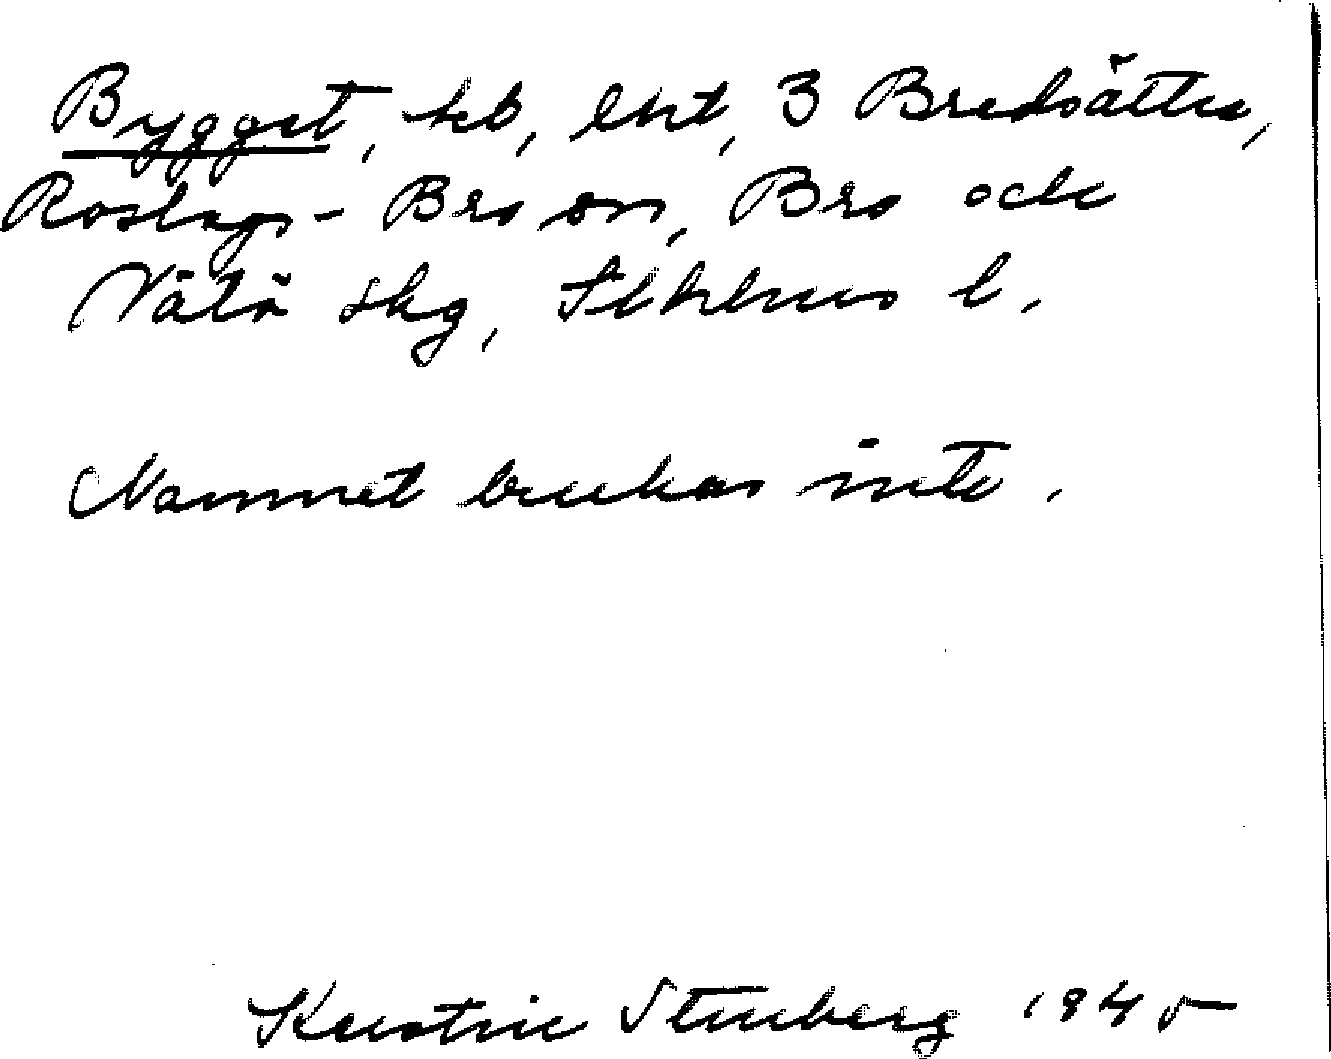 Bygget, hb, lht, 3 Bredsättra,
Roslags-Bro sn, Bro och
Vätö skg, Sthlms l.
Namnet brukas inte.
Kerstin Stenberg 1945